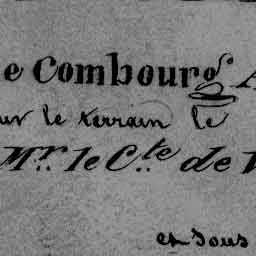 e Combourg A
sur le terrain le
Mr. le Cte. de V
et sous